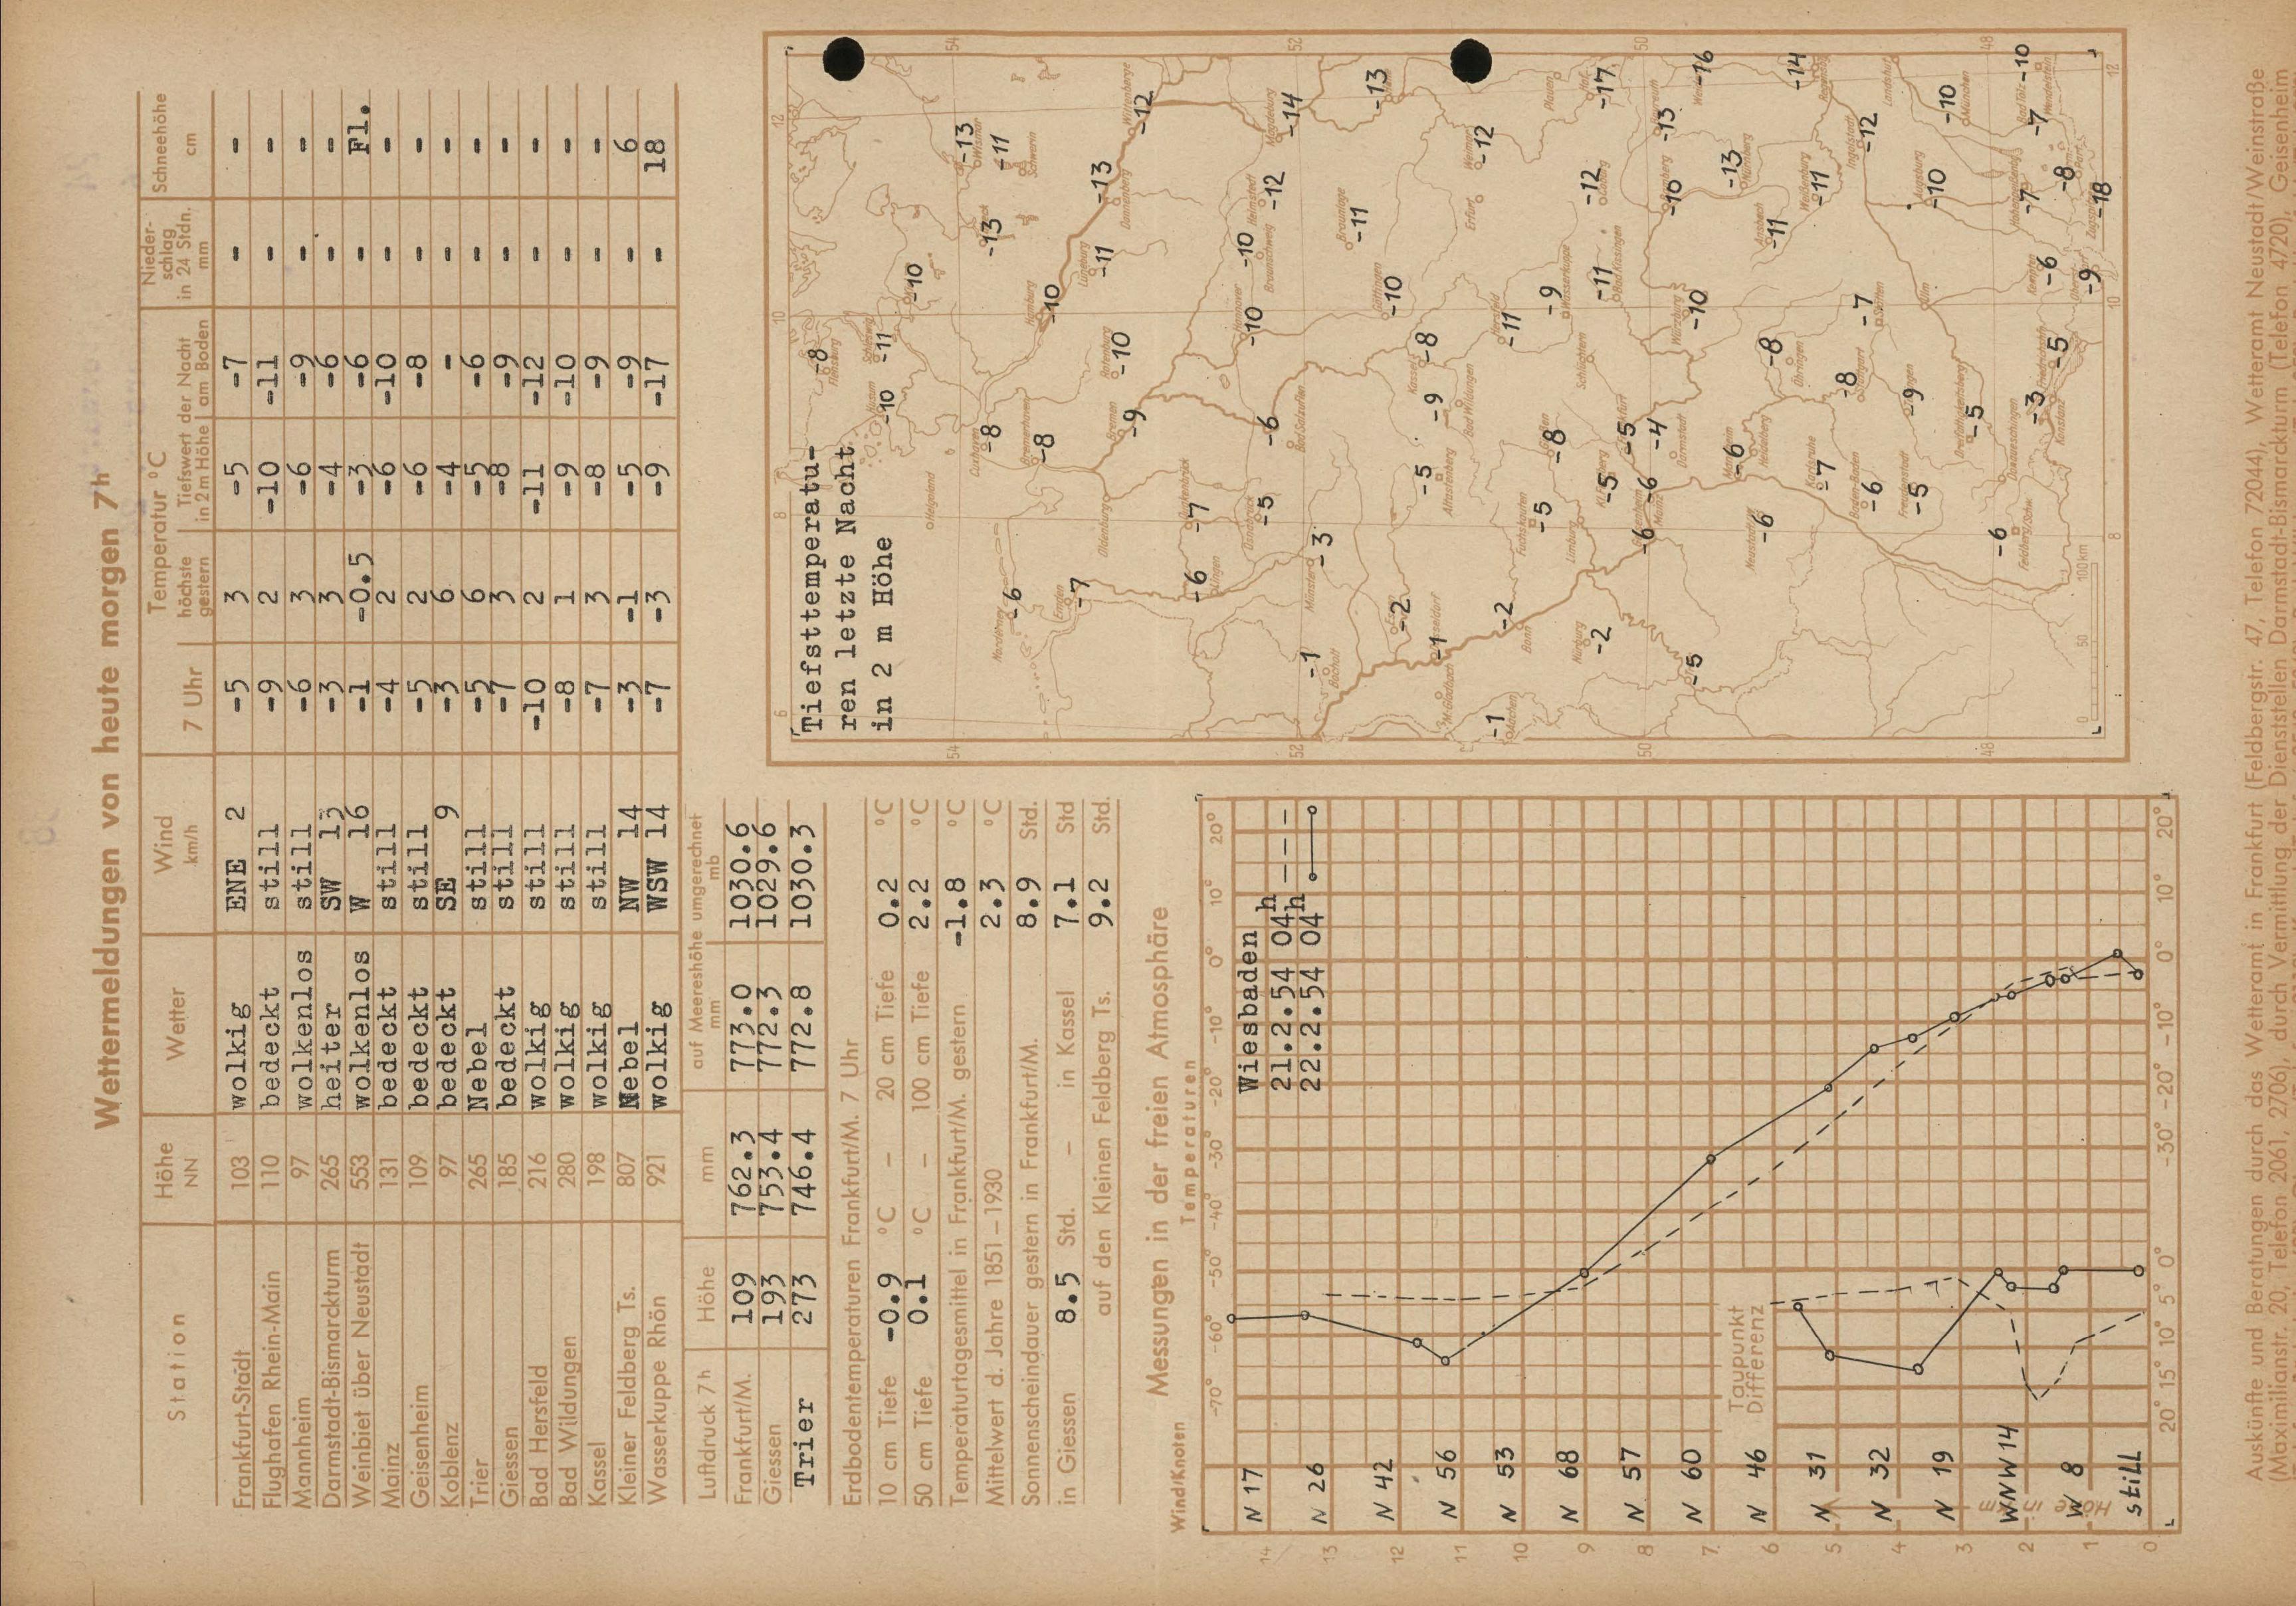 Wettermeldungen von heute morgen 7h
Station Höhe NN Wetter Wind km/h Temperatur °C 7 Uhr höchste gestern Tiefstwert der Nacht in 2 m Höhe am Boden Nieder-schlag in 24 Stdn. mm Schneehöhe cm
Frankfurt-Stadt 103 wolkig ENE 2 -5 3 -5 -7 - -
Flughafen Rhein-Main 110 bedeckt still -9 2 -10 -11 - -
Mannheim 97 wolkenlos still -6 3 -6 -9 - -
Darmstadt-Bismarckturm 265 heiter SW 13 -3 3 -4 -6 - -
Weinbiet über Neustadt 553 wolkenlos W 16 -1 -0.5 -3 -6 - Fl.
Mainz 131 bedeckt still -4 2 -6 -10 - -
Geisenheim 109 bedeckt still -5 2 -6 -8 - -
Koblenz 97 bedeckt SE 9 -3 6 -4 - - -
Trier 265 Nebel still -5 6 -5 -6 - -
Giessen 185 bedeckt still -7 3 -8 -9 - -
Bad Hersfeld 216 wolkig still -10 2 -11 -12 - -
Bad Wildungen 280 wolkig still -8 1 -9 -10 - -
Kassel 198 wolkig still -7 3 -8 -9 - -
Kleiner Feldberg Ts. 807 Nebel NW 14 -3 -1 -5 -9 - 6
Wasserkuppe Rhön 921 wolkig WSW 14 -7 -3 -9 -17 - 18
Luftdruck 7h Höhe mm auf Meereshöhe umgerechnet mm mb
Frankfurt/M. 109 762.3 773.0 1030.6
Giessen 193 753.4 772.3 1029.6
Trier 273 746.4 772.8 1030.3
Erdbodentemperaturen Frankfurt/M. 7 Uhr
10 cm Tiefe -0.9 °C – 20 cm Tiefe 0.2 °C
50 cm Tiefe 0.1 °C – 100 cm Tiefe 2.2 °C
Temperaturtagesmittel in Frankfurt/M. gestern -1.8 °C
Mittelwert d. Jahre 1851–1930 2.3 °C
Sonnenscheindauer gestern in Frankfurt/M. 8.9 Std.
in Giessen 8.5 Std. – in Kassel 7.1 Std
auf den Kleinen Feldberg Ts. 9.2 Std.
Messungen in der freien Atmosphäre
Wind/Knoten Temperaturen
-70° -60° -50° -40° -30° -20° -10° 0° 10° 20°
Wiesbaden
21.2.54 04h
22.2.54 04h
14 N 17
13 N 26
12 N 42
11 N 56
10 N 53
9 N 68
8 N 57
7 N 60
6 N 46
5 N 31
4 N 32
3 N 19
2 WNW 14
1 W 8
0 still
Höhe in km
Taupunkt
Differenz
20° 15° 10° 5° 0° -30° -20° -10° 0° 10° 20°
Tiefsttemperatu-
ren letzte Nacht
in 2 m Höhe
6 8 10 12
54 54
52 52
50 50
48 48
8 10 12
Flensburg -8
Schleswig -11
Husum -10
-10
Helgoland
Cuxhaven -8
Wismar -13
Schwern -11
-13
Hamburg -10
Bremerhaven -8
Norderney -6
Emden -7
Oldenburg
Bremen -9
Rotenburg -10
Lüneburg -11
Dannenberg -13
Wittenberge -12
-7
Lingen -6
Osnabrück -5
Hannover -10
Braunschweig -10
Helmstedt -12
Magdeburg -14
Bad Salzuflen -6
Münster -3
Bocholt -1
Göttingen -10
Braunlage -11
-13
-2
-1
M.Gladbach
Kassel -8
Bad Wildungen -9
Altastenberg -5
Erfurt
Weimar -12
Hersfeld -11
Aachen -1
Bonn -2
-8
Wasserkuppe -9
Fuchskauten -5
Limburg
Nürburg -2
Schlüchtern
Bad Kissingen -11
Coburg -12
Plauen
Hof -17
-5
-5
Mainz -6
-6
Darmstadt -4
-5
Würzburg -10
Bamberg -10
-13
-16
Nürnberg -13
Ansbach -11
Heidelberg -6
-6
Öhringen -8
Karlsruhe -7
Weißenburg -11
-14
Baden-Baden -6
Stuttgart -8
-7
Ingolstadt -12
Landshut
Freudenstadt -5
-9
Ulm
Augsburg -10
München -10
-5
Donaueschingen
Feldberg/Schw. -6
-7
Bad Tölz -7
Wendelstein -10
Konstanz -3
Friedrichshafen -5
-6
-9
-8
Zugspitze -18
0 50 100 km
Auskünfte und Beratungen durch das Wetteramt in Frankfurt (Feldbergstr. 47, Telefon 72044), Wetteramt Neustadt/Weinstraße
(Maximilianstr. 20, Telefon 2061, 2706), durch Vermittlung der Dienststellen Darmstadt-Bismarckturm (Telefon 4720), Geisenheim